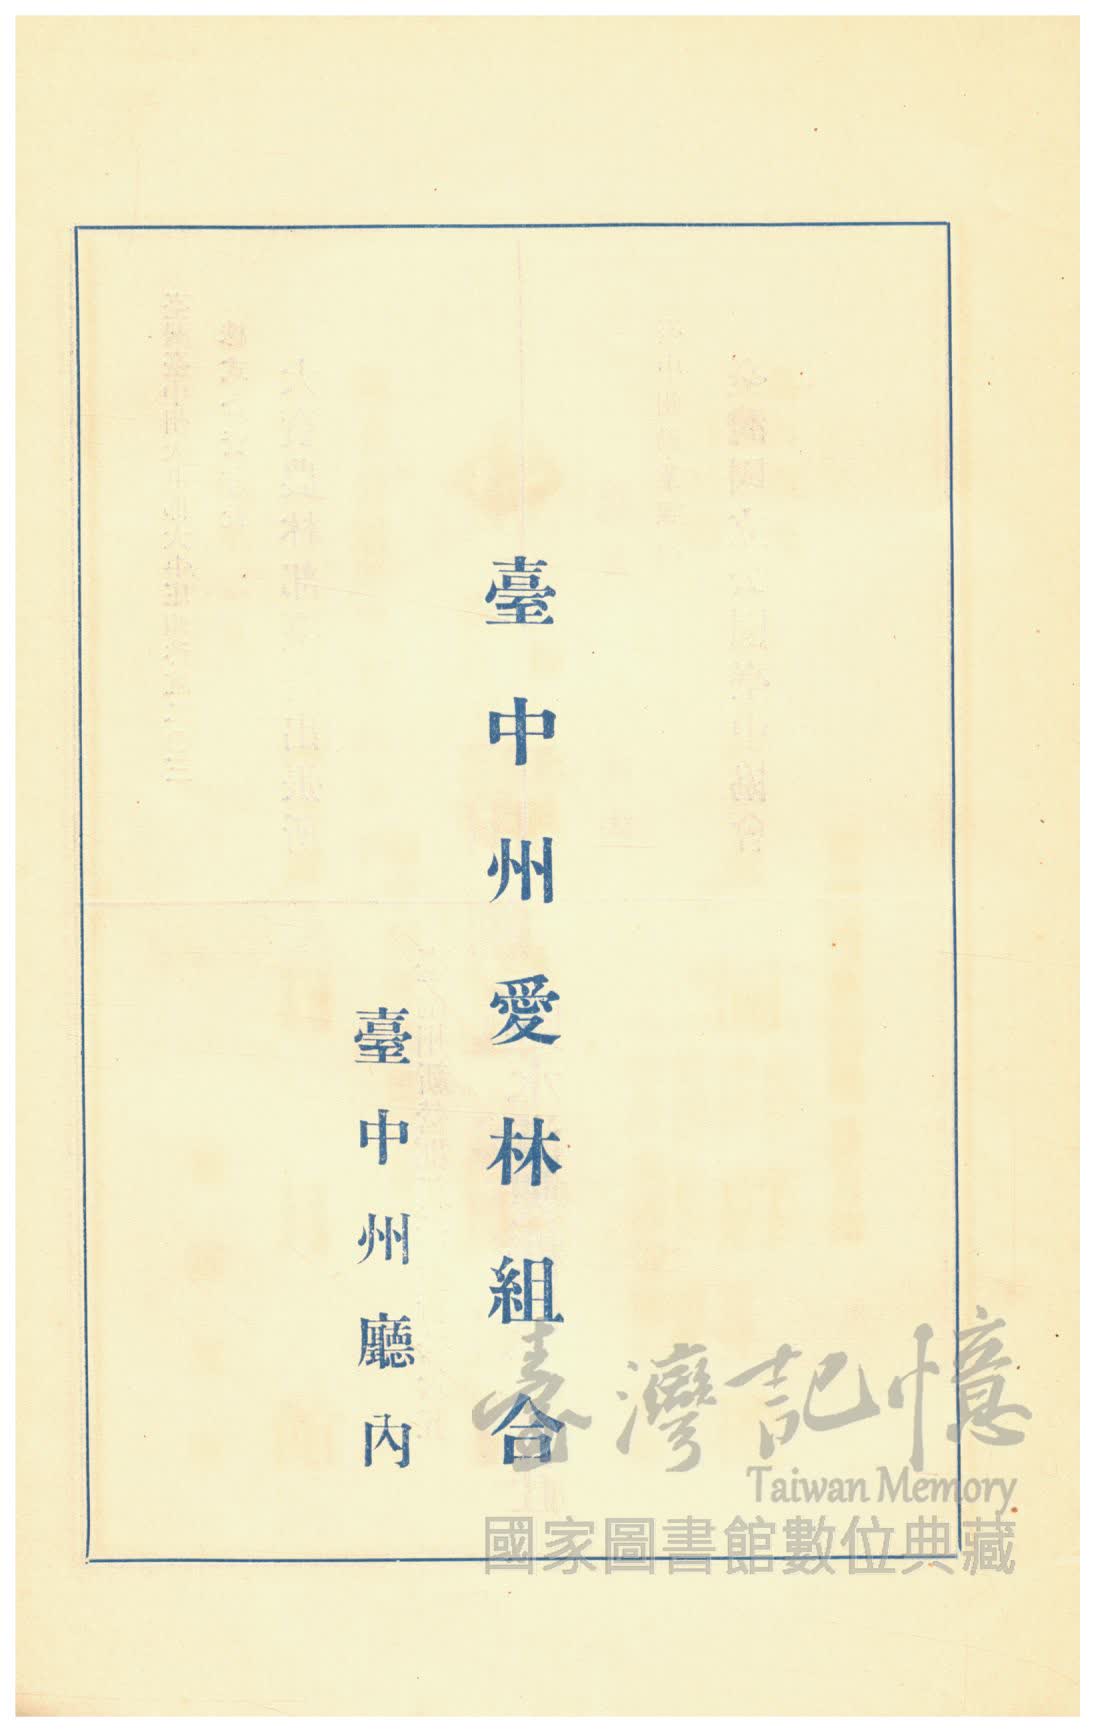 臺中州愛林組合
臺中州廳內
臺灣記憶
Taiwan Memory
國家圖書館數位典藏